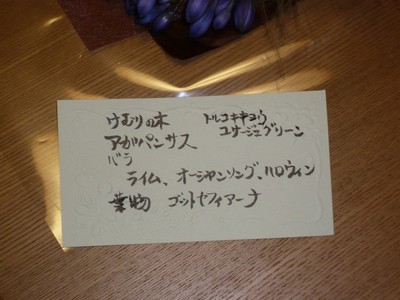 けむりの木 トルコキキョウ
アガパンサス ユサージュグリーン
バラ
ライム、オーシャンソング、ハロウィン
葉物 ゴットセフィアーナ